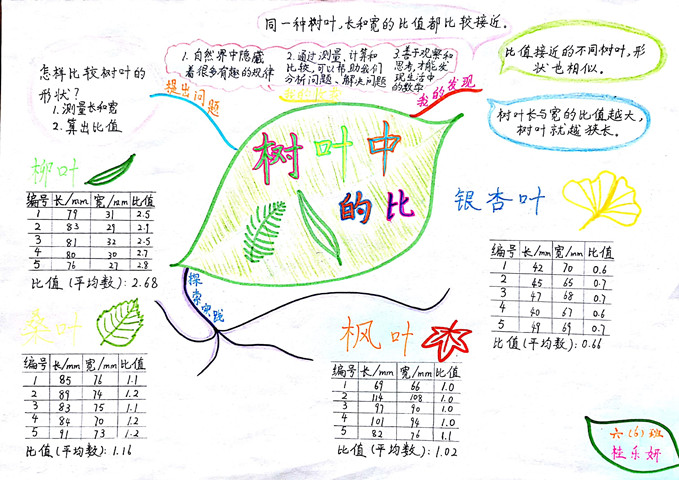 同一种树叶，长和宽的比值都比较接近。
1.自然界中隐藏
着很多有趣的规律
2.通过测量、计算和
比较，可以帮助我们
分析问题、解决问题
3.善于观察和
思考，才能发
现生活中
的数学
比值接近的不同树叶，形
状也相似。
树叶长与宽的比值越大，
树叶就越狭长。
怎样比较树叶的
形状？
1.测量长和宽
2.算出比值
提出问题
我的收获
我的发现
树叶中
的比
探索实践
柳叶
编号 长/mm 宽/mm 比值
1 79 31 2.5
2 83 29 2.9
3 81 32 2.5
4 80 30 2.7
5 76 27 2.8
比值（平均数）：2.68
银杏叶
编号 长/mm 宽/mm 比值
1 42 70 0.6
2 45 65 0.7
3 47 68 0.7
4 40 67 0.6
5 49 69 0.7
比值（平均数）：0.66
桑叶
编号 长/mm 宽/mm 比值
1 85 76 1.1
2 89 74 1.2
3 83 75 1.1
4 84 70 1.2
5 91 73 1.2
比值（平均数）：1.16
枫叶
编号 长/mm 宽/mm 比值
1 69 66 1.0
2 114 108 1.0
3 97 90 1.0
4 101 94 1.0
5 82 76 1.1
比值（平均数）：1.02
六（6）班
桂乐妍